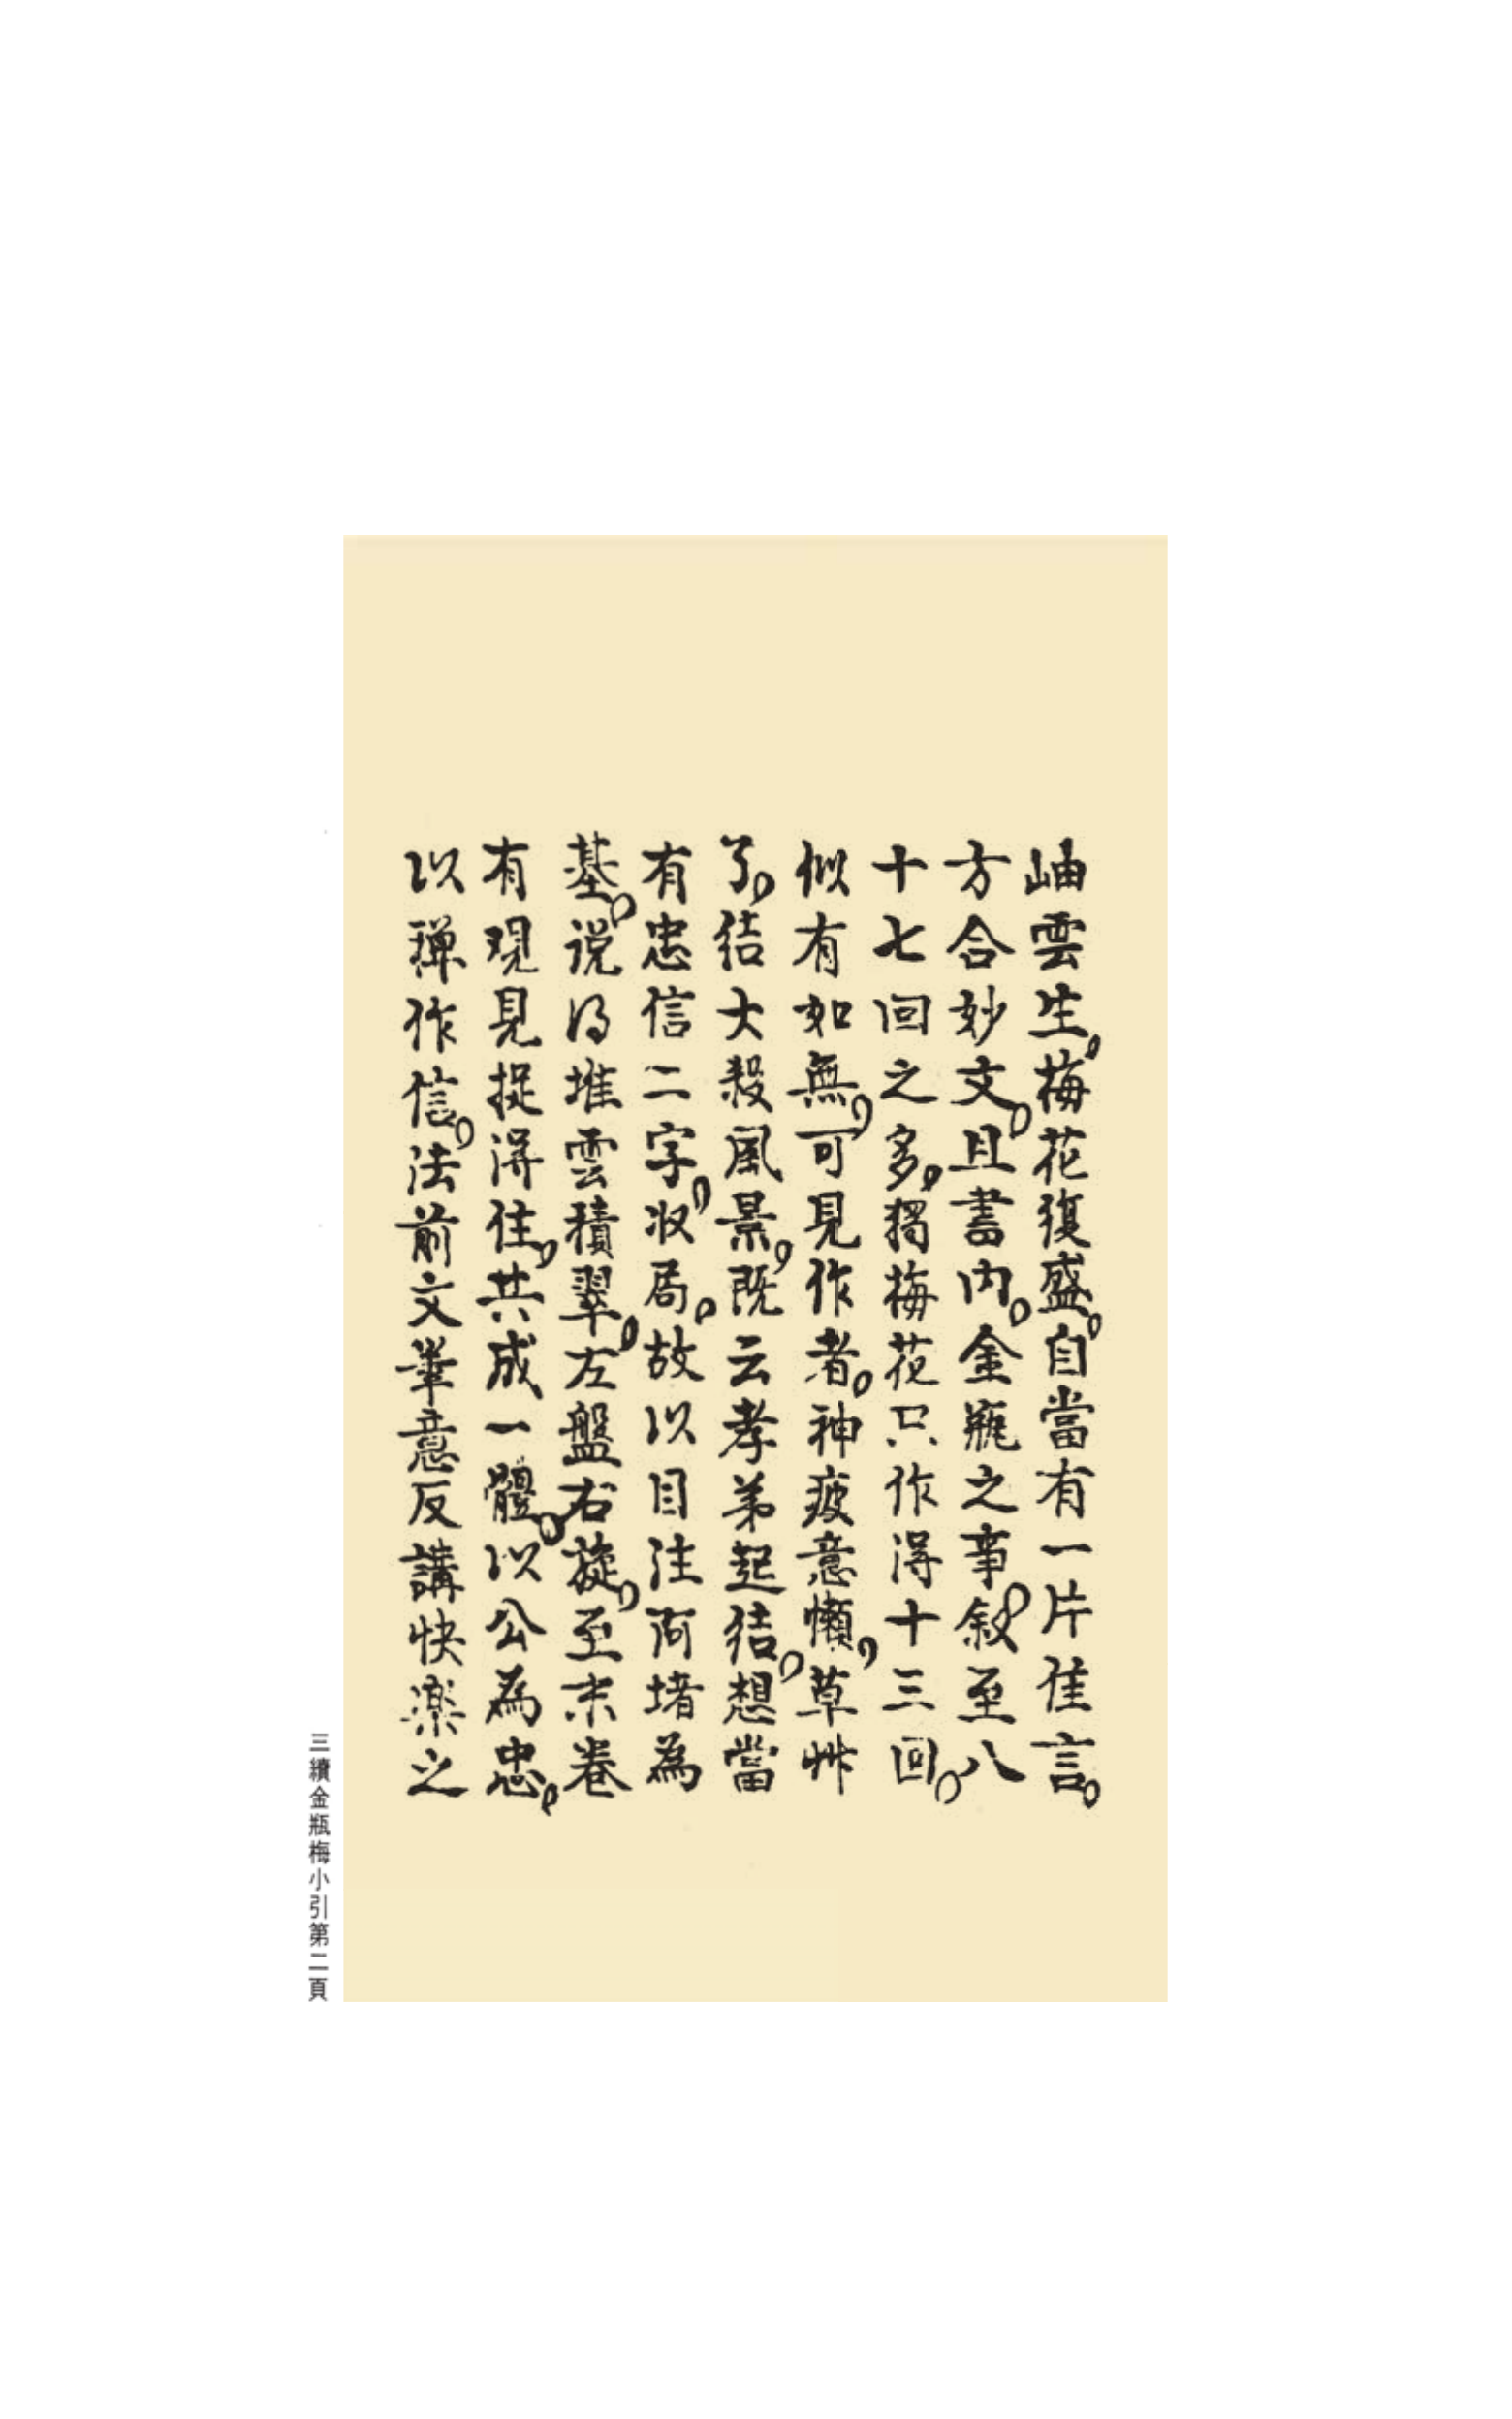 岫雲生。梅花復盛。自當有一片佳言。
方合妙文。且書内。金瓶之事。敘至八
十七回之多。獨梅花只作得十三回。
似有如無。可見作者。神疲意懶。草艸
了。结大殺風景。既云孝弟起结。想當
有忠信二字。收局。故以目注阿堵為
基。说得堆雲積翠。左盤右旋。至末卷
有观見捉得住。共成一體。以公為忠。
以禅作信。法前文筆意反講快楽之
三續金瓶梅小引第二頁